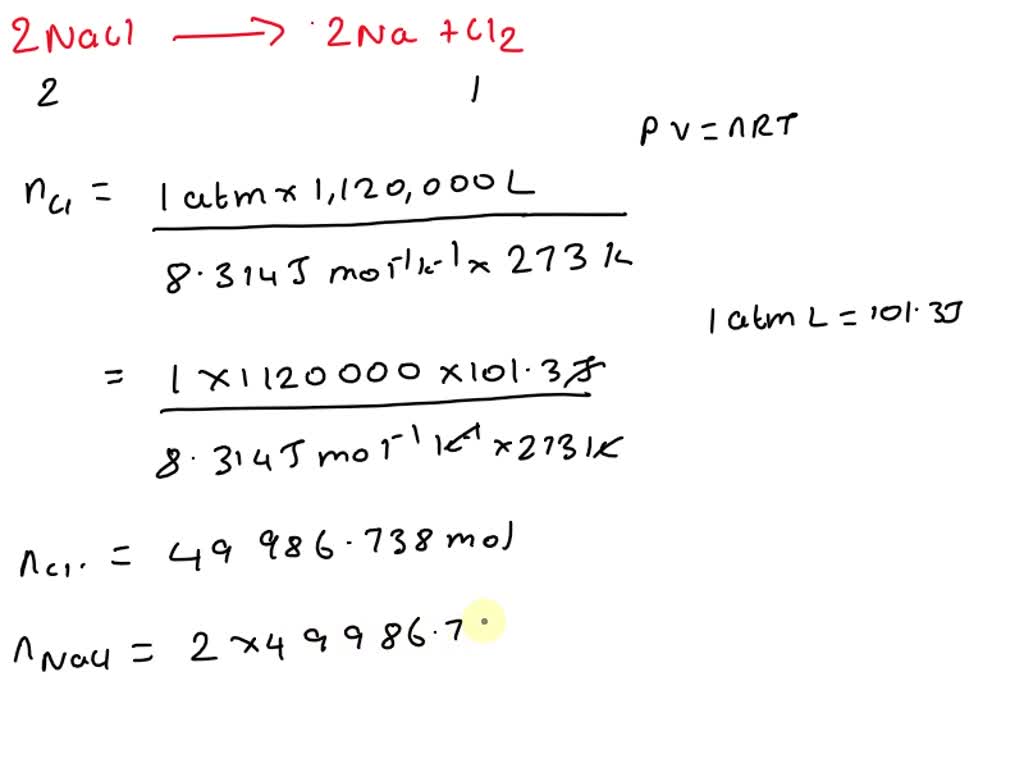 2NaCl → 2Na + Cl2
2 1
PV = nRT
nCl = 1 atm × 1,120,000 L
8.314 J mol-1 k-1 × 273 K
1 atm L = 101.3J
= 1 × 1120000 × 101.3J
8.314 J mol-1 K-1 × 273 K
nCl. = 49 986.738 mol
nNaCl = 2 × 49986.7